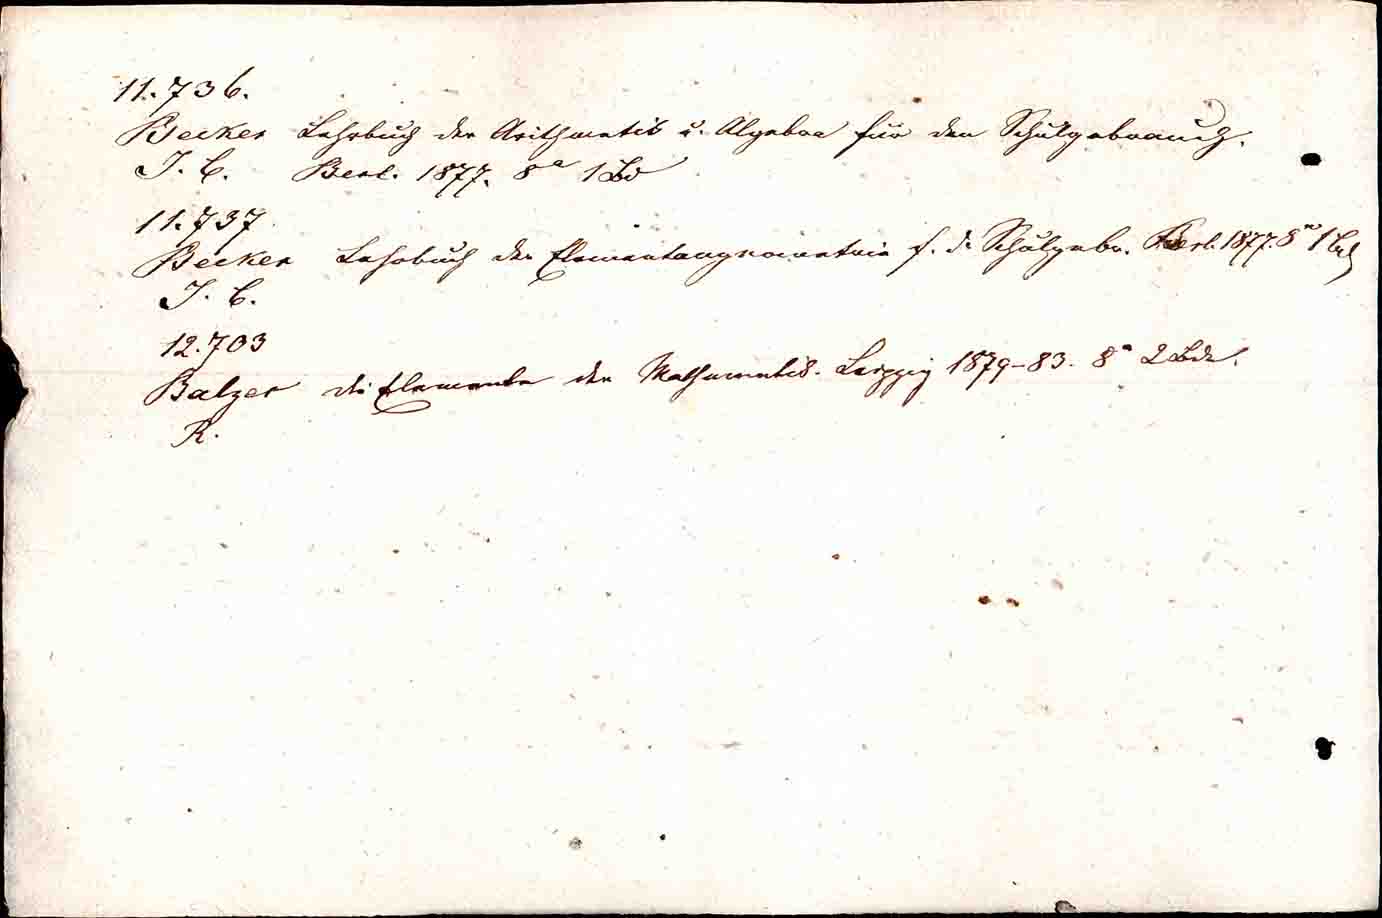 11.736.
Becker Lehrbuch der Arithmetik u. Algebra für den Schulgebrauch.
J. C. Berl. 1877. 8° 1 Bd
11.737
Becker Lehrbuch der Elementargeometrie f. d. Schulgebr. Berl. 1877. 8° 1 Bd
J. C.
12.703
Balzer die Elemente der Mathematik. Leipzig 1879-83. 8° 2 Bde.
R.